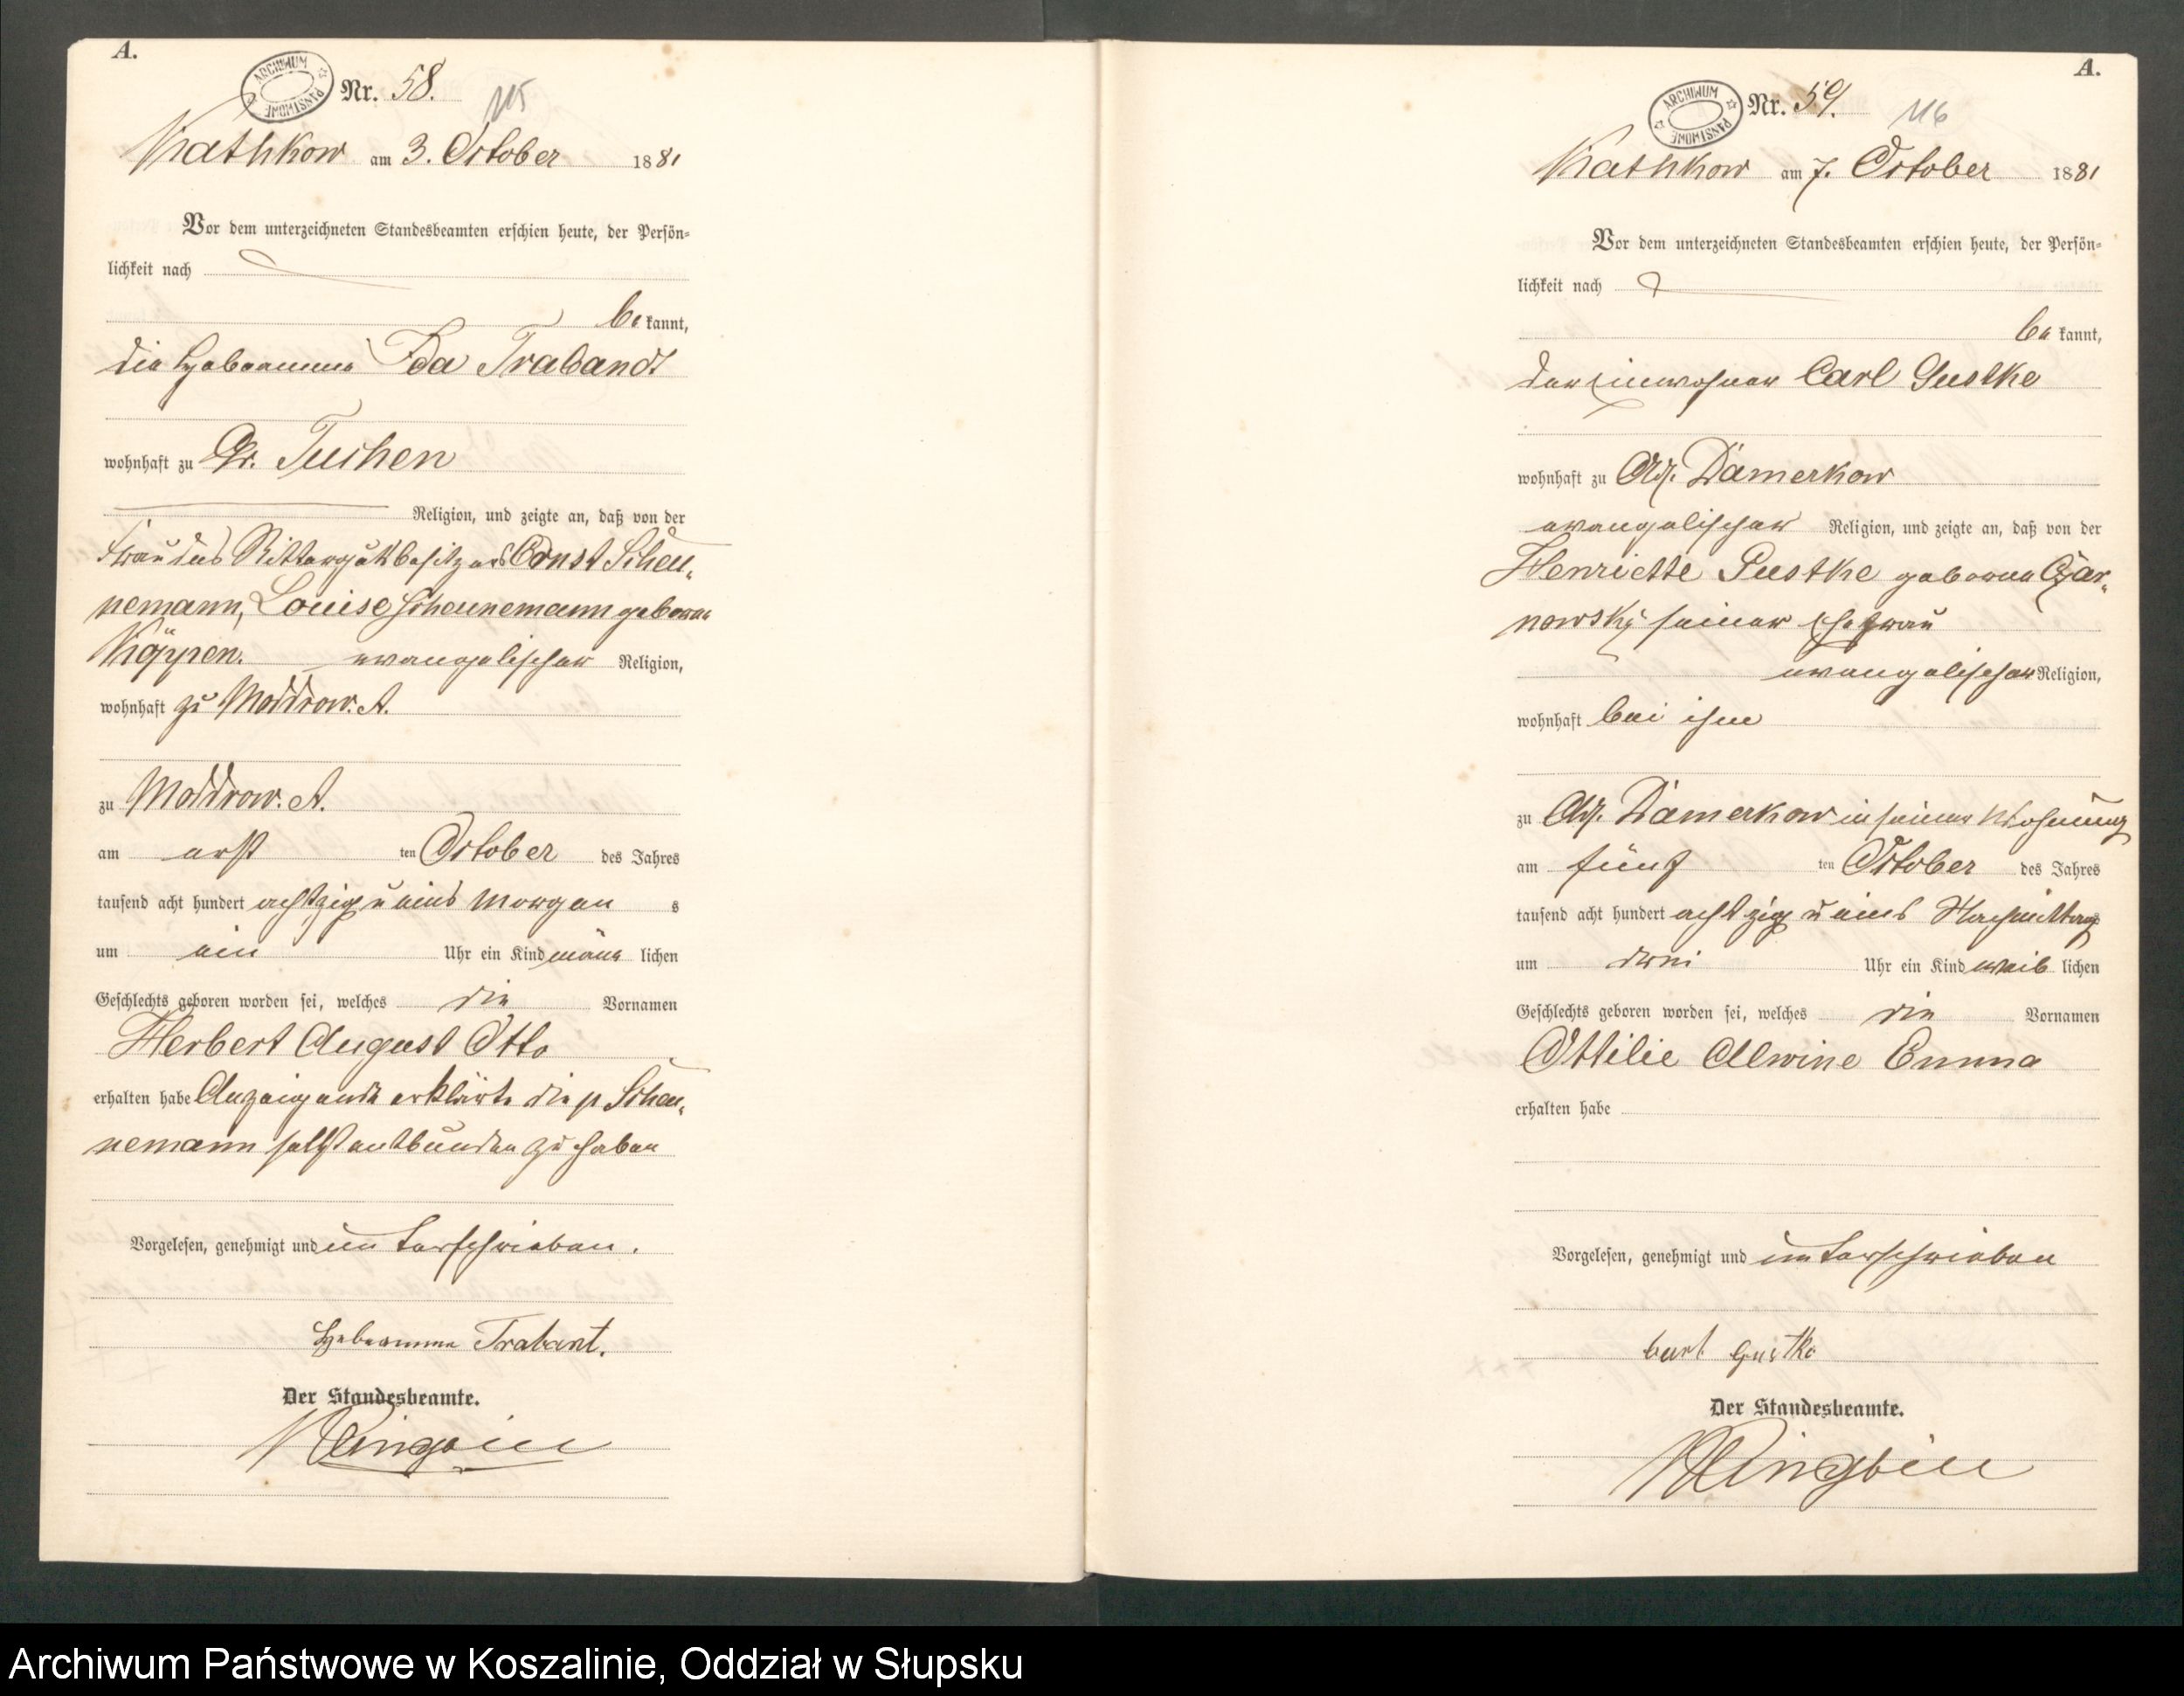 A.
ARCHIWUM PAŃSTWOWE
Nr. 58.
115
Kathkow am 3. October 1881
Vor dem unterzeichneten Standesbeamten erschien heute, der Persön-
lichkeit nach
be kannt,
die Hebeamme Ida Trabandt
wohnhaft zu Gr. Tuchen
Religion, und zeigte an, daß von der
Frau des Rittergutsbesitzers Ernst Scheu-
nemann, Louise Scheunemann geborene
Köppen. evangelischer Religion,
wohnhaft zu Moddrow. A.
zu Moddrow. A.
am erst ten October des Jahres
tausend acht hundert achtzig u eins Morgen s
um ein Uhr ein Kind männ lichen
Geschlechts geboren worden sei, welches die Vornamen
Herbert August Otto
erhalten habe Anzeigende erklärte die p Scheu-
nemann selbst entbunden zu haben
Vorgelesen, genehmigt und unterschrieben.
Hebeamme Trabant.
Der Standesbeamte.
A.
ARCHIWUM PAŃSTWOWE
Nr. 59.
116
Kathkow am 7. October 1881
Vor dem unterzeichneten Standesbeamten erschien heute, der Persön-
lichkeit nach
be kannt,
der Einwohner Carl Gustke
wohnhaft zu Adl. Dämerkow
evangelischer Religion, und zeigte an, daß von der
Henriette Gustke geborene Czar-
nowsky seiner Ehefrau
evangelischer Religion,
wohnhaft bei ihm
zu Adl. Dämerkow in seiner Wohnung
am fünf ten October des Jahres
tausend acht hundert achtzig u eins Nachmittag s
um drei Uhr ein Kind weib lichen
Geschlechts geboren worden sei, welches die Vornamen
Ottilie Alwine Emma
erhalten habe
Vorgelesen, genehmigt und unterschrieben
Carl Gustke
Der Standesbeamte.
Archiwum Państwowe w Koszalinie, Oddział w Słupsku